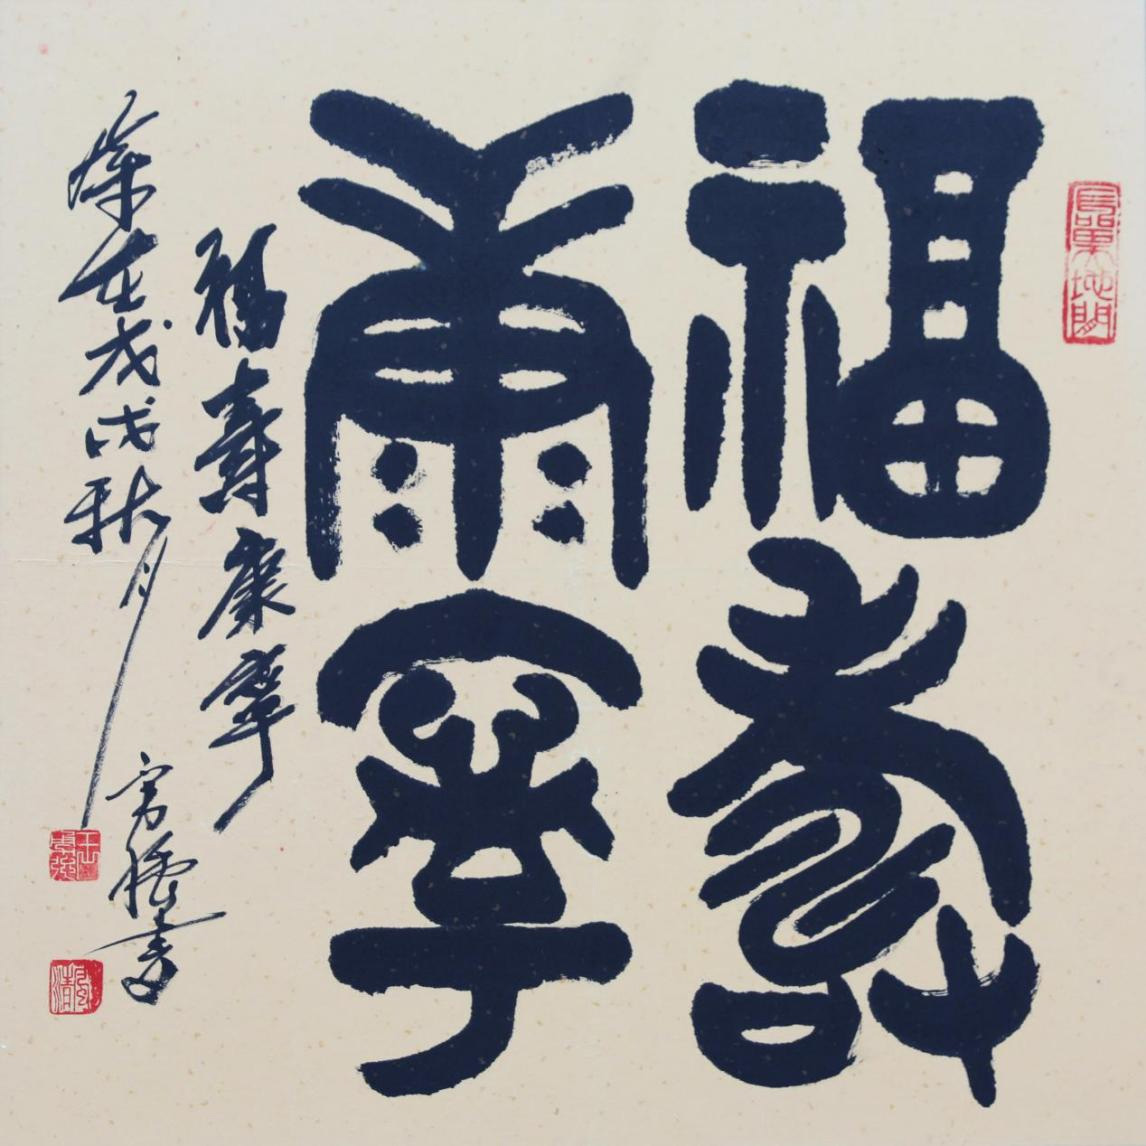 福壽
康寧
福壽康寧
歲在戊戌秋月
書